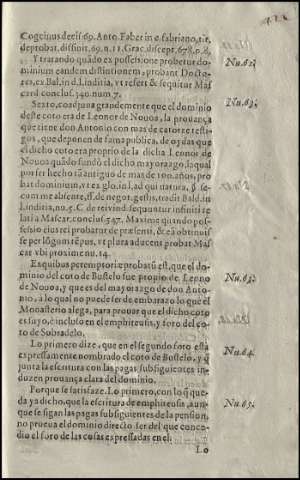 Cogcinus decis. 69. Anto. Faber in c. fabriano, tit.
de probat. diffinit. 69. n. 11. Grac. discept. 678. n. 8.
Y tratando quãdo ex possessione probetur do-
minium eandem distintionem, probant Docto-
res, ex Bal. in l. inditia, vt refert & sequitur Mas
card. conclus. 540. num. 7.
Nu. 62.
Sexto, coadjuua grandemente que el dominio
deste coto era de Leonor de Nouoa, la prouança
que tiene don Antonio con mas de catorze testi-
gos, que deponen de fama publica, de oydas que
el dicho coto era proprio de la dicha Leonor de
Nouoa quãdo fundò el dicho mayorazgo, la qual
por ser hecho tã antiguo de mas de 100. años, pro
bat dominium, vt ex glo. in l. ad qui natura, §. se-
cum me absente, ff. de negot. gestis, tradit Bald. in
l. inditia, nu. 5. C. de reivind. sequuntur infiniti re
lati a Mascar. conclus. 547. Maxime quando pos-
sessio eius rei probatur de præsenti, & ea obtinuis
se per lõgum tẽpus, vt plura aducens probat Mas
car. vbi proxime nu. 14.
Nu. 63.
Ex quibus peremptorie probatũ est, que el do-
minio del coto de Bustelo fue proprio de Leonor
de Nouoa, y que es del mayorazgo de don Anto-
nio, a lo qual no puede ser de embarazo lo que el
Monasterio alega, para prouar que el dicho coto
es suyo, è incluso en el emphiteusis, y foro del co-
to de Sobradelo.
Nu. 63.
Lo primero dize, que en el segundo foro està
expressamente nombrado el coto de Bustelo, y q̃
junta la escritura con las pagas subsiguientes in-
duzen prouança clara del dominio.
Nu. 64.
Porque se satisfaze. Lo primero, con lo q̃ que-
da ya dicho, que la escritura de emphiteusis, aun-
que se sigan las pagas subsiguientes de la pension,
no prueua el dominio directo ser del que conce-
dio el foro de las cosas expressadas en el:
Nu. 65.
Lo